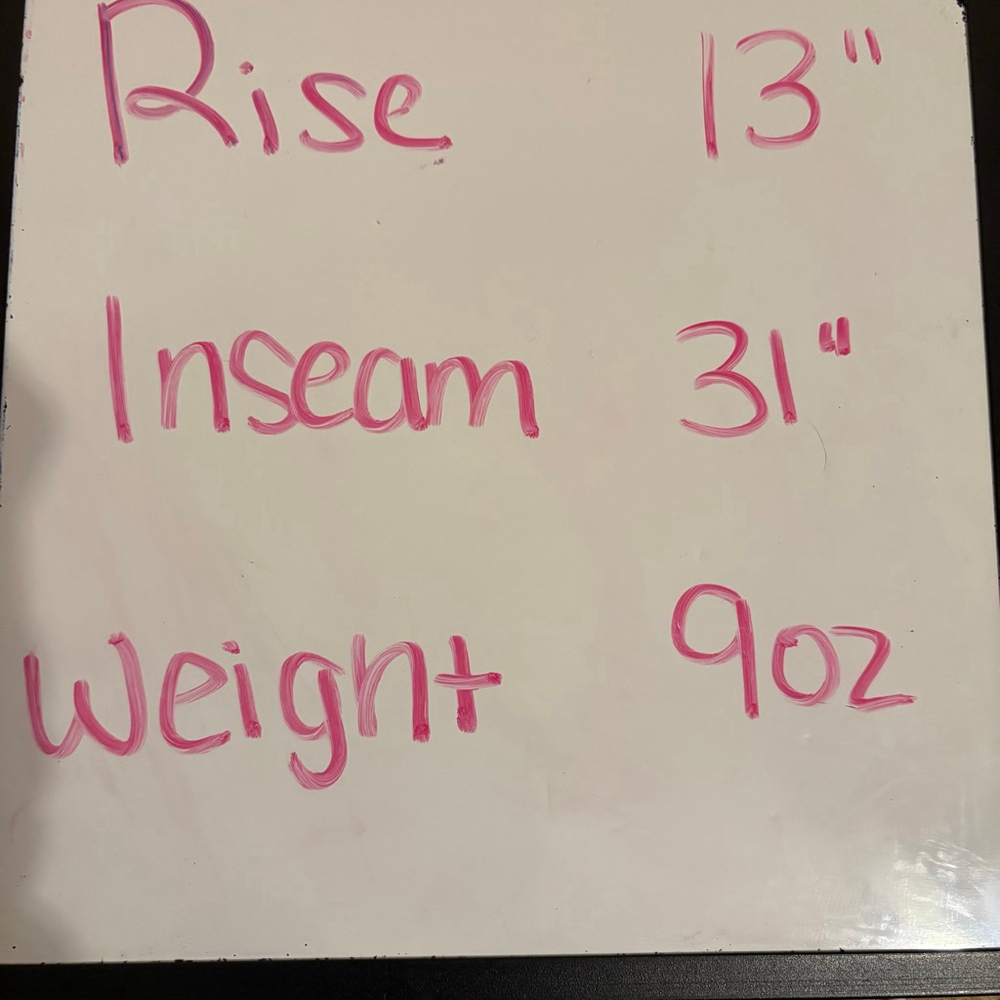 Rise 13"
Inseam 31"
Weight 9oz